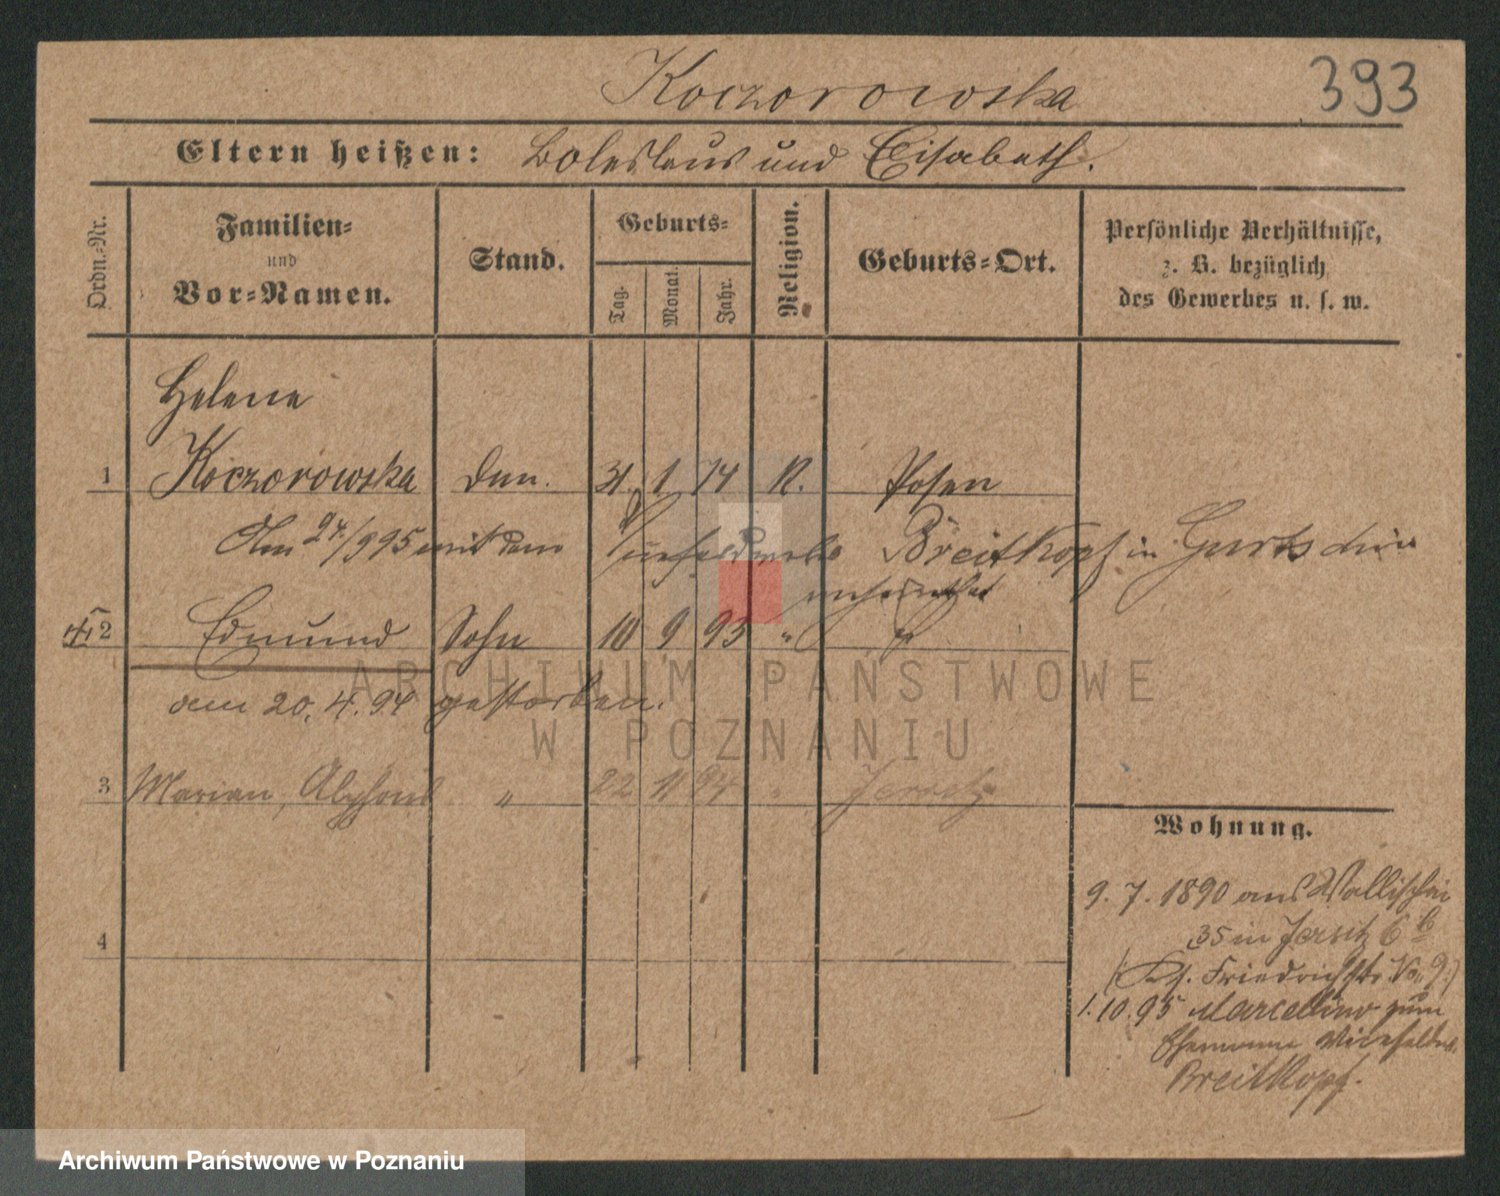 Koczorowska
393
Eltern heißen: Boleslaus und Elisabeth.
Ordn.-Nr.
Familien-
und
Vor-Namen.
Stand.
Geburts-
Tag.
Monat.
Jahr.
Religion.
Geburts-Ort.
Persönliche Verhältnisse,
z. B. bezüglich
des Gewerbes u. s. w.
Helene
1 Koczorowska 31. 1 74 R. Posen
Am 24/9 95 mit dem Vicefeldwebel Breitkopf in Gurtschin
verheirathet
2 Edmund Sohn 10 9 93 " "
am 20. 4. 94 gestorben.
3 Marian, Alphons " 22 11 94 " Jersitz
4
Wohnung.
9. 7. 1890 aus Wallischei
35 in Jersitz 6 b
Friedrichstr. No 9.)
1. 10. 95 Marcellino zum
Ehemann Vicefeldw.
Breitkopf.
ARCHIWUM PAŃSTWOWE
W POZNANIU
Archiwum Państwowe w Poznaniu